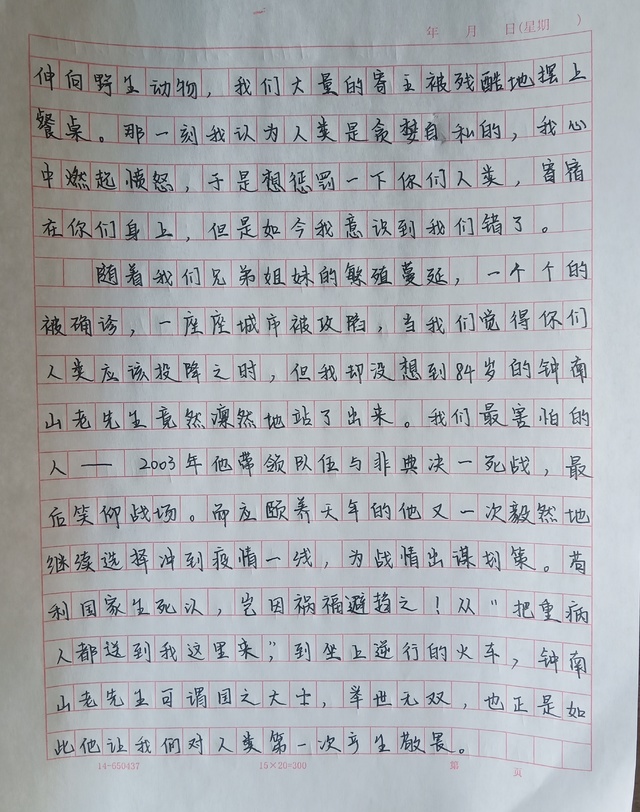 年 月 日(星期 )
伸向野生动物，我们大量的寄主被残酷地摆上
餐桌。那一刻我认为人类是贪婪自私的，我心
中燃起愤怒，于是想惩罚一下你们人类，寄宿
在你们身上，但是如今我意识到我们错了。
随着我们兄弟姐妹的繁殖蔓延，一个个的
被确诊，一座座城市被攻陷，当我们觉得你们
人类应该投降之时，但我却没想到84岁的钟南
山老先生竟然凛然地站了出来。我们最害怕的
人——2003年他带领队伍与非典决一死战，最
后笑仰战场。而应颐养天年的他又一次毅然地
继续选择冲到疫情一线，为战情出谋划策。苟
利国家生死以，岂因祸福避趋之！从“把重病
人都送到我这里来”，到坐上逆行的火车，钟南
山老先生可谓国之大士，举世无双，也正是如
此他让我们对人类第一次产生敬畏。
14-650437 15×20=300 第 页